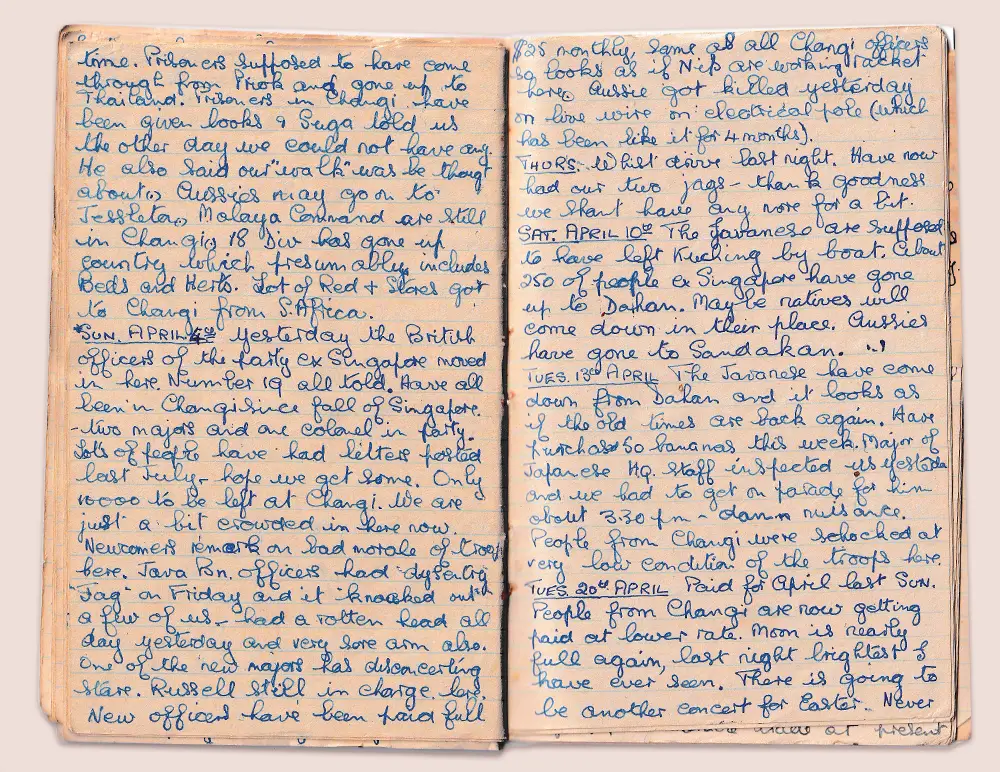 time. Prisoners supposed to have come
through from Priok and gone up to
Thailand. Prisoners in Changi have
been given books & Suga told us
the other day we could not have any.
He also said our "walk" was be thought
about. Aussies may go on to
Jessleton. Malaya Command are still
in Changi. 18 Div has gone up
country which presumably includes
Beds and Herts. Lot of Red + Stores got
to Changi from S. Africa.
SUN. APRIL 4th Yesterday the British
officers of the party ex Singapore moved
in here. Number 19 all told. Have all
been in Changi since fall of Singapore.
- two majors and one colonel in party.
Lots of people have had letters posted
last July - hope we get some. Only
10000 to be left at Changi. We are
just a bit crowded in here now.
Newcomers remark on bad morale of troops
here. Java Bn. officers had dysentry
"Jag" on Friday and it knocked out
a few of us - had a rotten head all
day yesterday and very sore arm also.
One of the new majors has disconcerting
stare. Russell still in charge here.
New officers have been paid full
$25 monthly, same as all Changi officers
so looks as if Nips are working racket
here. Aussie got killed yesterday
on live wire on electrical pole (which
has been like it for 4 months).
THURS. Whist drive last night. Have now
had our two jags - thank goodness
we shant have any more for a bit.
SAT. APRIL 10th The Javanese are supposed
to have left Kuching by boat. About
250 of people ex Singapore have gone
up to Dahan. Maybe natives will
come down in their place. Aussies
have gone to Sandakan.
TUES. 13th APRIL The Javanese have come
down from Dahan and it looks as
if the old times are back again. Have
purchased 50 bananas this week. Major of
Japanese HQ. staff inspected us yesterday
and we had to get on parade for him
about 3.30 pm - damn nuisance.
People from Changi were schocked at
very low condition of the troops here.
TUES. 20th APRIL Paid for April last Sun.
People from Changi are now getting
paid at lower rate. Moon is nearly
full again, last night brightest I
have ever seen. There is going to
be another concert for Easter. Never
at present